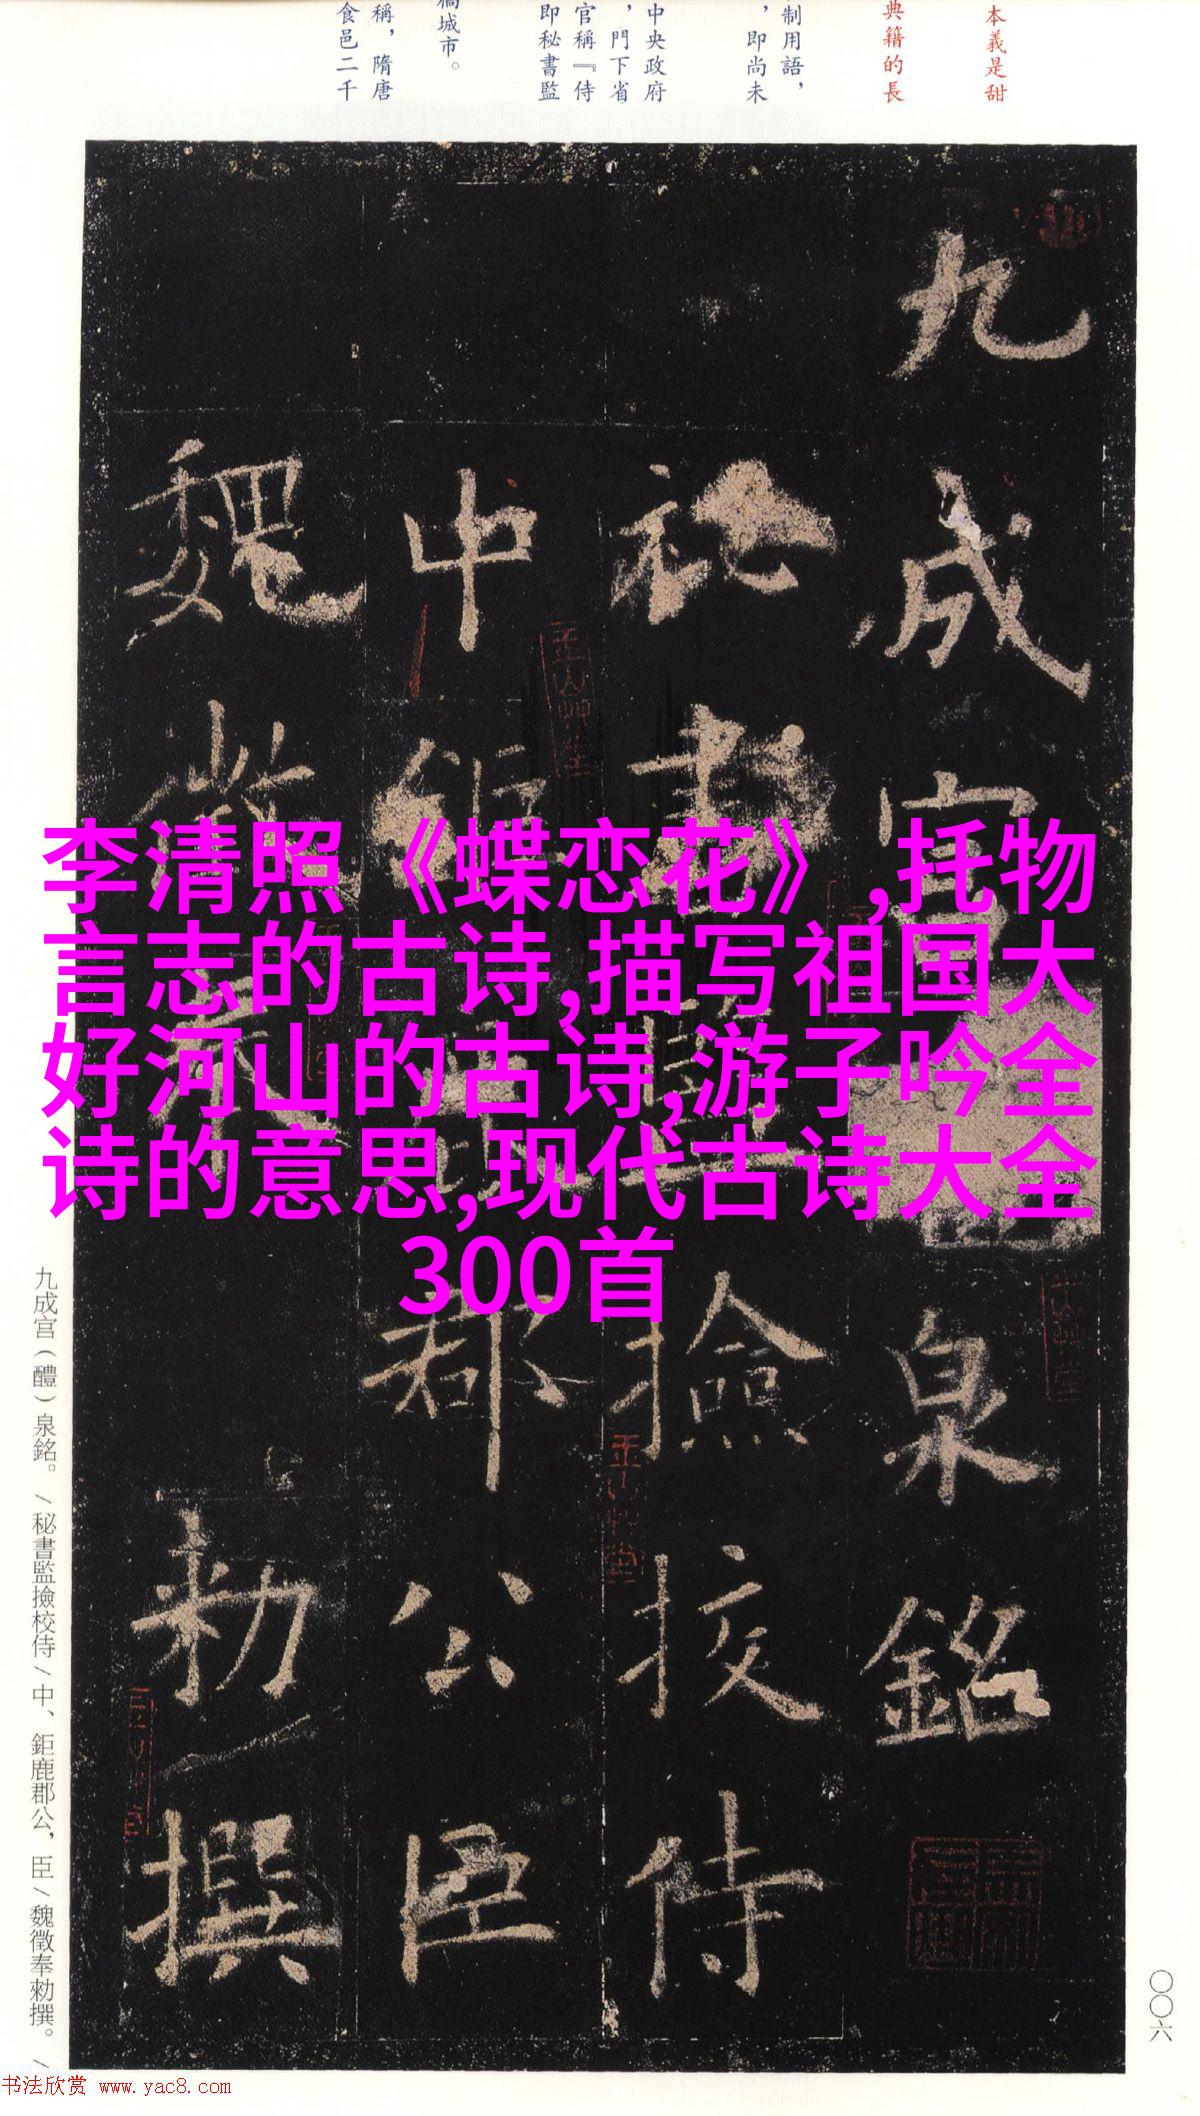 本義是甜
典籍的長
制用語，
，即尚未
中央政府
，門下省
官稱『侍
即秘書監
城市。
稱，隋唐
食邑二千
九成宮
泉銘
秘書
撿挍侍
中
都公臣
魏
勑撰
李清照《蝶恋花》,托物
言志的古诗,描写祖国大
好河山的古诗,游子吟全
诗的意思,现代古诗大全
300首
九成宫（醴）泉銘。/秘書監撿校侍/中、鉅鹿郡公，臣/魏徵奉勑撰。/
〇〇六
书法欣赏 www.yac8.com